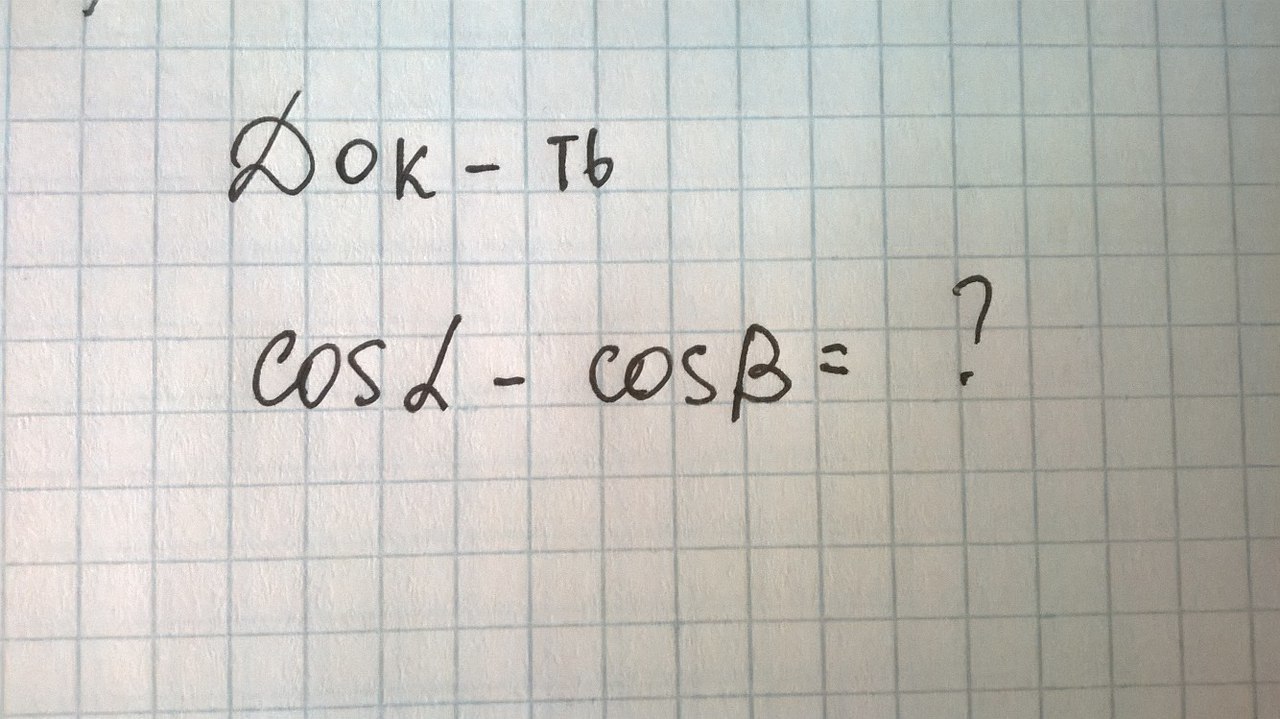 Док-ть
cosα - cosβ = ?